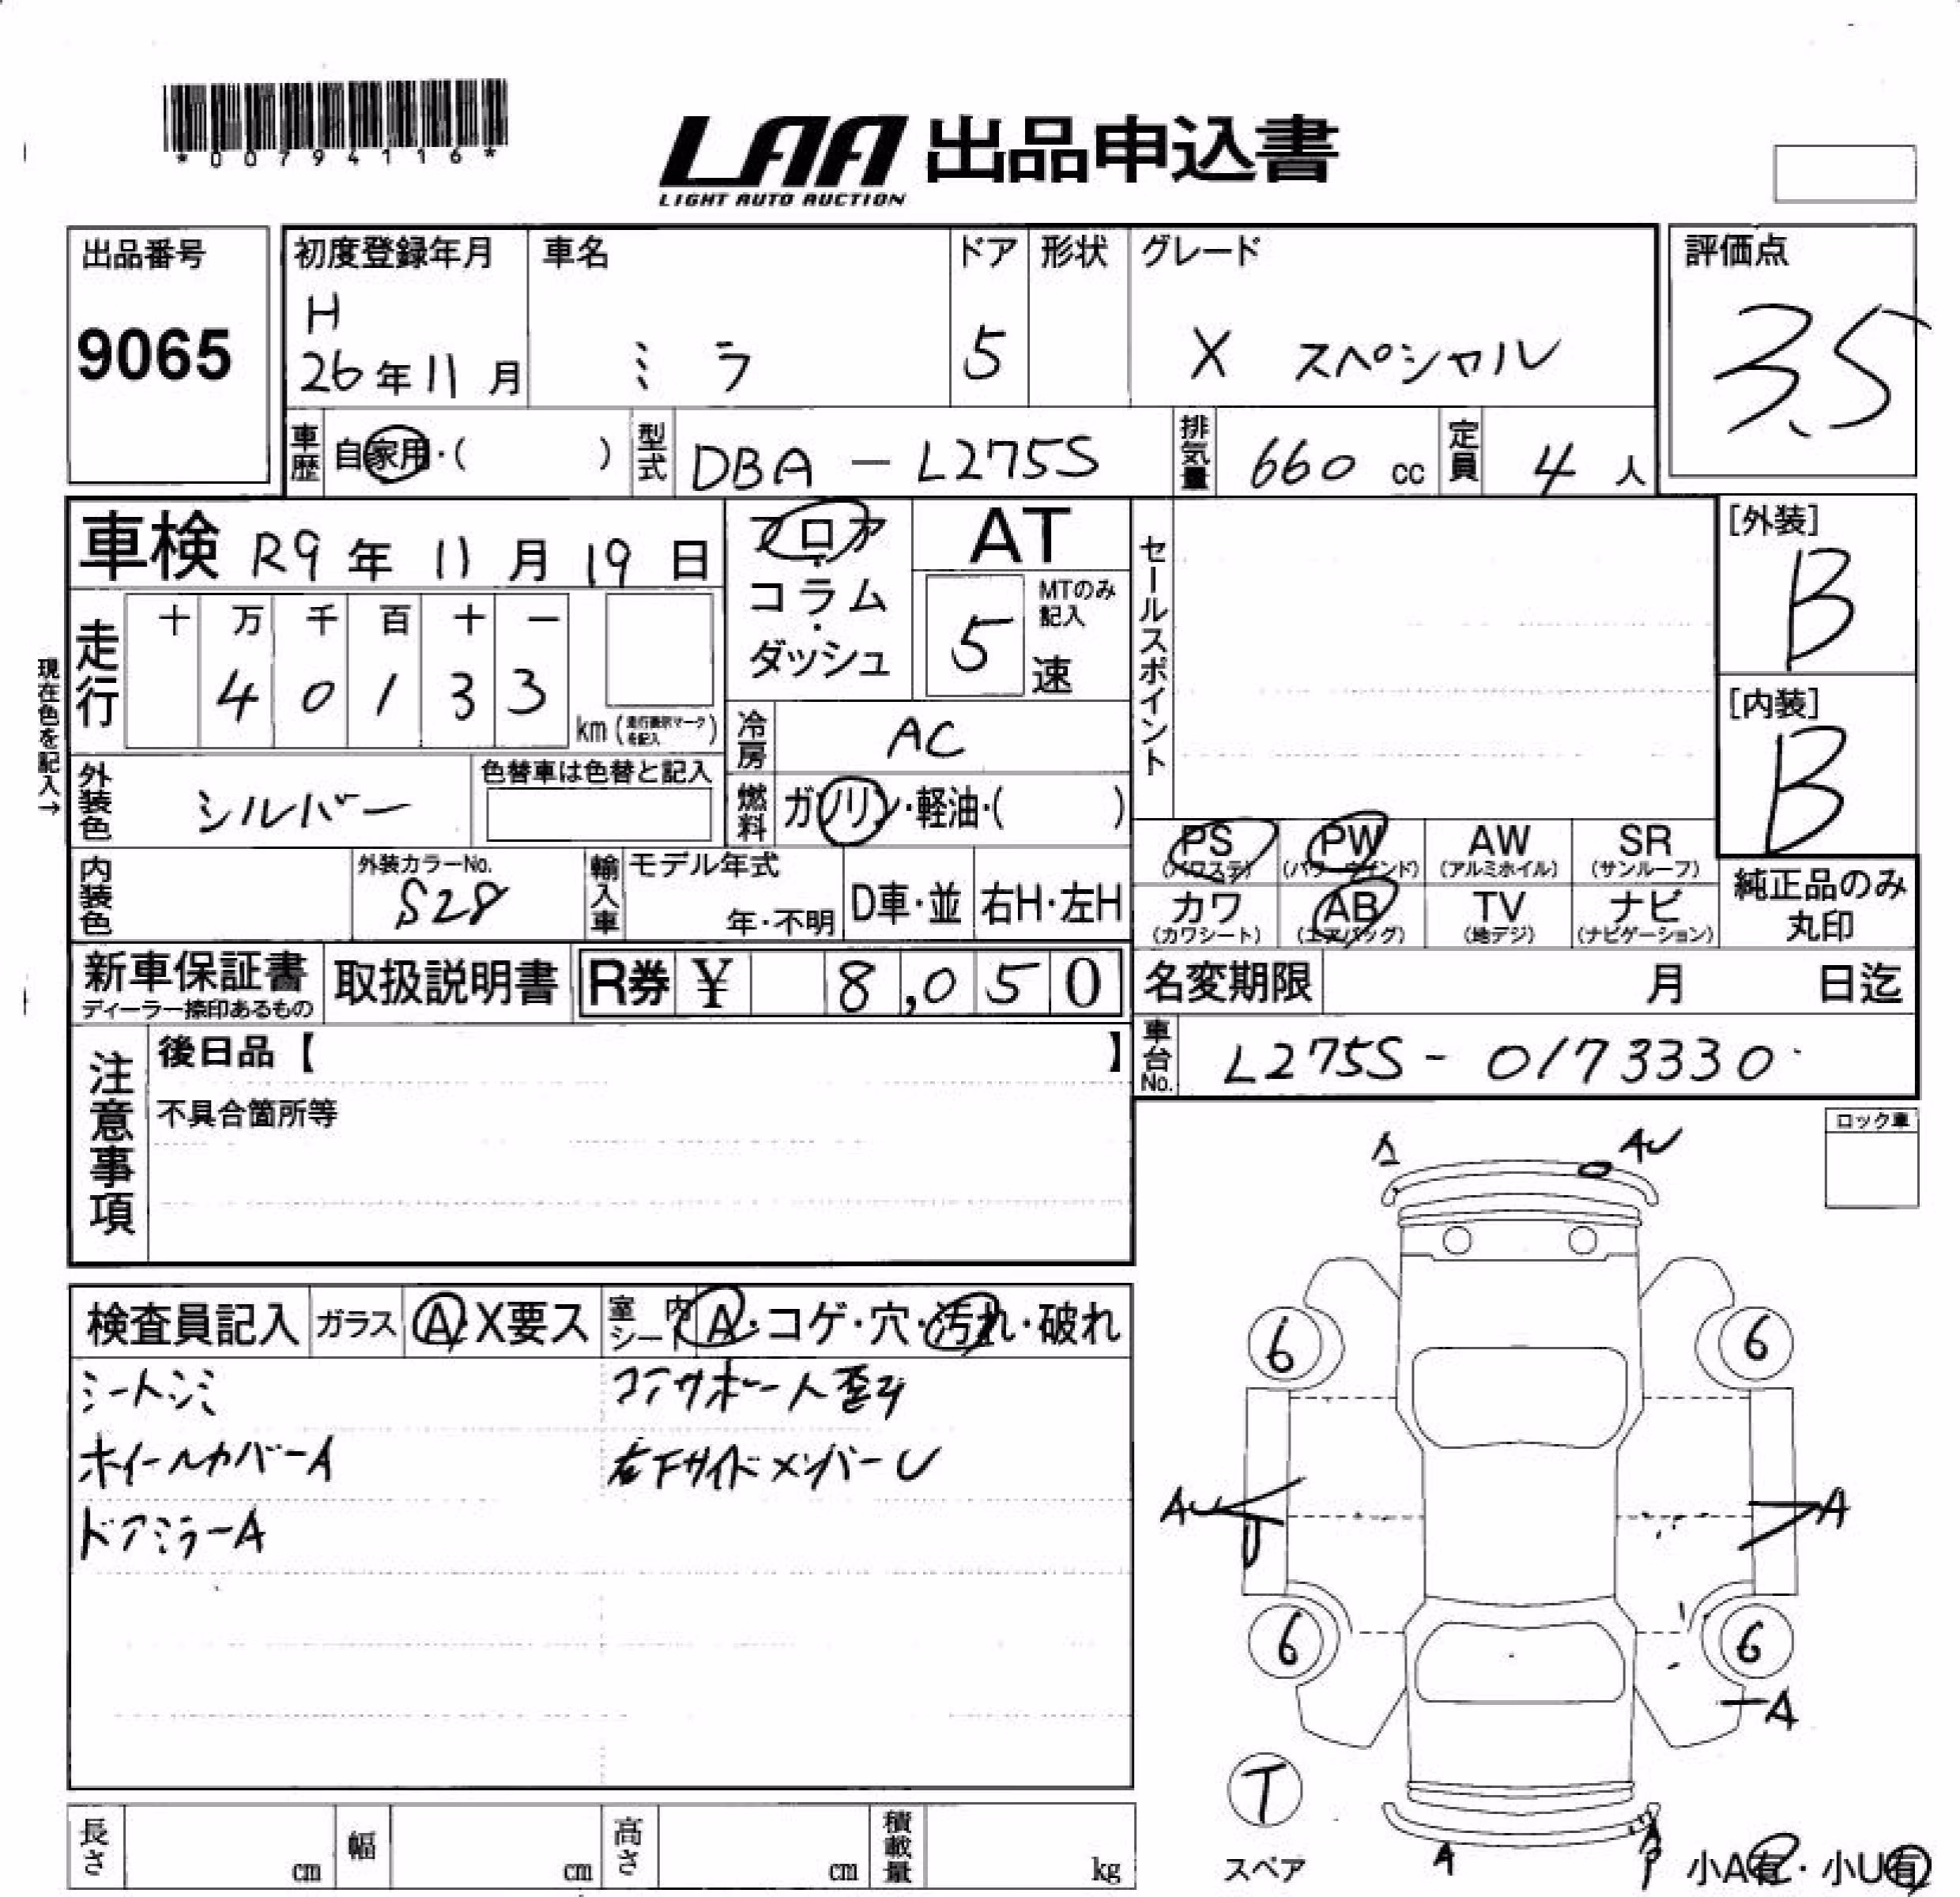 *00794116*
LAA 出品申込書
LIGHT AUTO AUCTION
出品番号
9065
初度登録年月
H
26年11月
車名
ミラ
ドア
5
形状
グレード
X スペシャル
評価点
3.5
車歴 自家用・( )
型式 DBA - L275S
排気量 660 cc
定員 4 人
車検 R9年 11月 19日
フロア・コラム・ダッシュ
AT
5 速
MTのみ記入
セールスポイント
[外装]
B
[内装]
B
現在色を記入→
走行
十 万 千 百 十 一
4 0 1 3 3
km (走行表示マークを記入)
冷房 AC
外装色 シルバー
色替車は色替と記入
燃料 ガソリン・軽油・( )
PS (パワステ)
PW (パワーウインド)
AW (アルミホイル)
SR (サンルーフ)
カワ (カワシート)
AB (エアバッグ)
TV (地デジ)
ナビ (ナビゲーション)
純正品のみ丸印
内装色
外装カラーNo.
S28
輸入車
モデル年式
年・不明
D車・並
右H・左H
新車保証書
ディーラー捺印あるもの
取扱説明書
R券 ¥ 8,050
名変期限 月 日迄
車台No. L275S - 0173330
注意事項
後日品【 】
不具合箇所等
ロック車
A
AU
検査員記入
ガラス A・X要ス
室内シート A・コゲ・穴・汚れ・破れ
シートシミ
コアサポート歪み
ホイールカバーA
右下サイドメンバーU
ドアミラーA
6
6
AU
A
U
6
6
A
T
スペア
A
A
P
小A有・小U有
長さ cm
幅 cm
高さ cm
積載量 kg